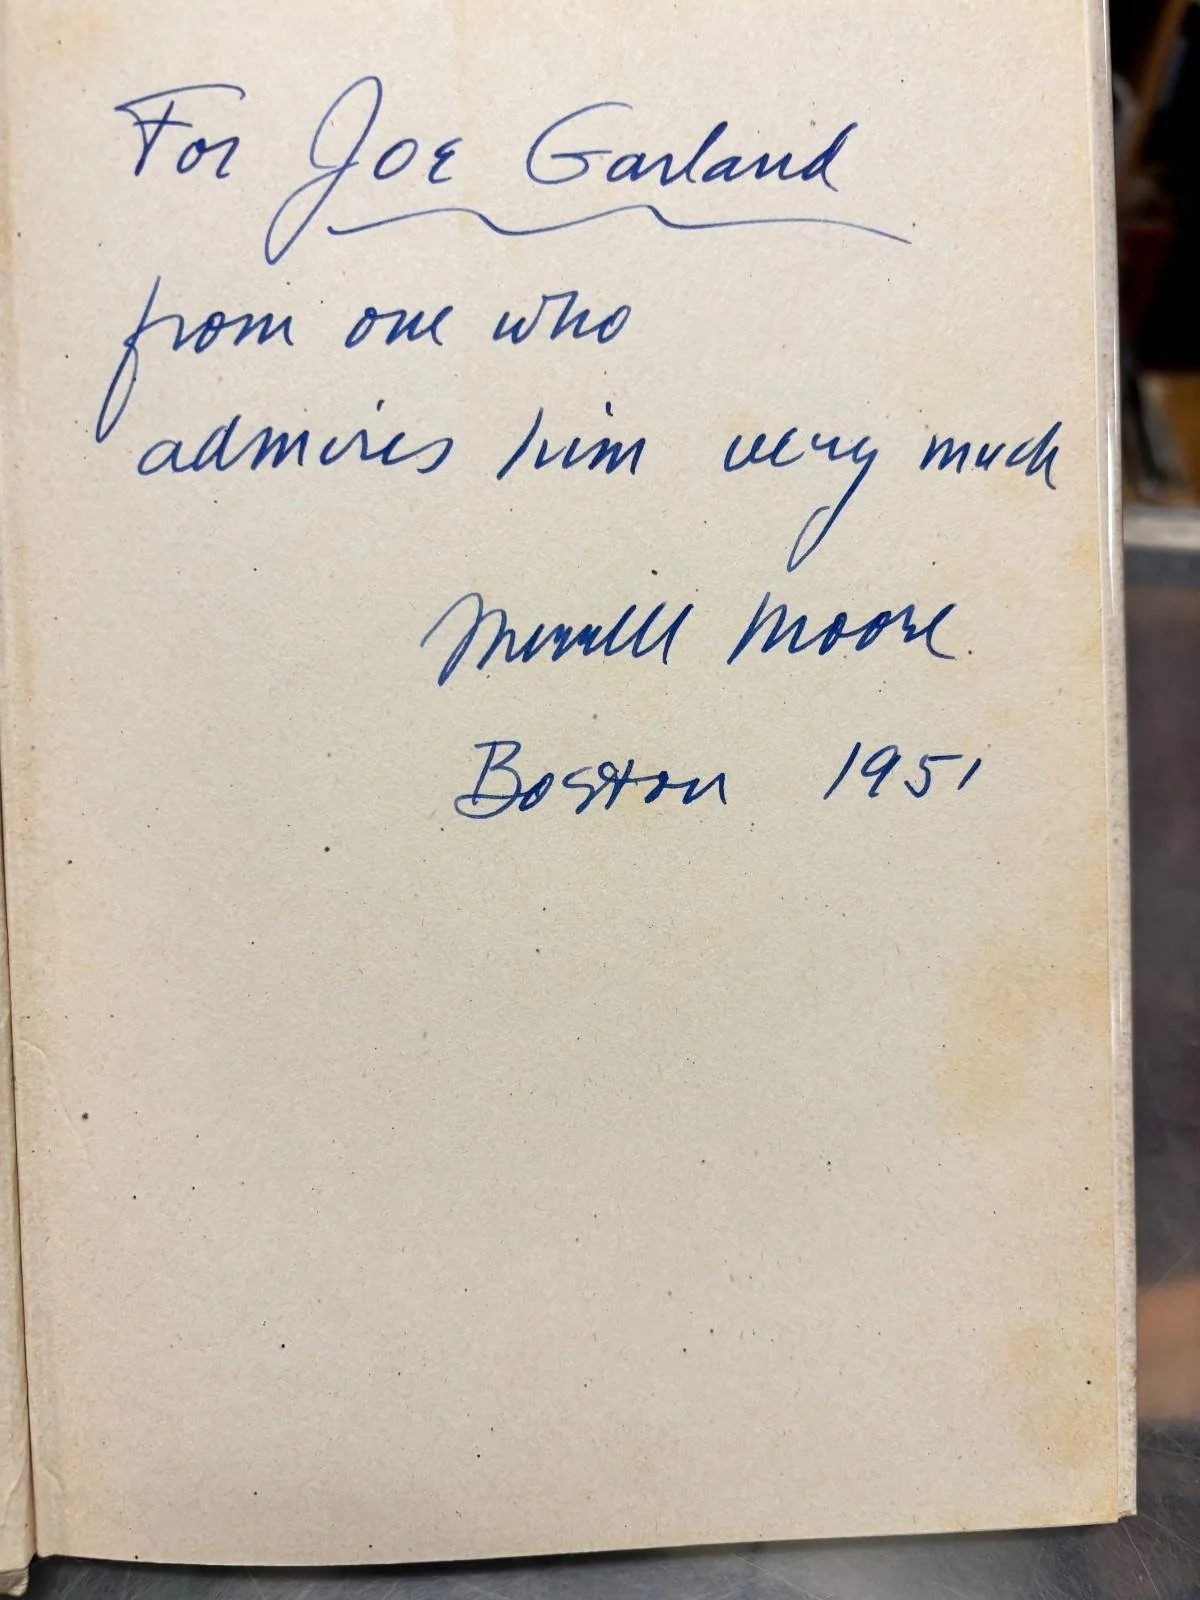 For Joe Garland
from one who
admires him very much
Merrill Moore
Boston 1951